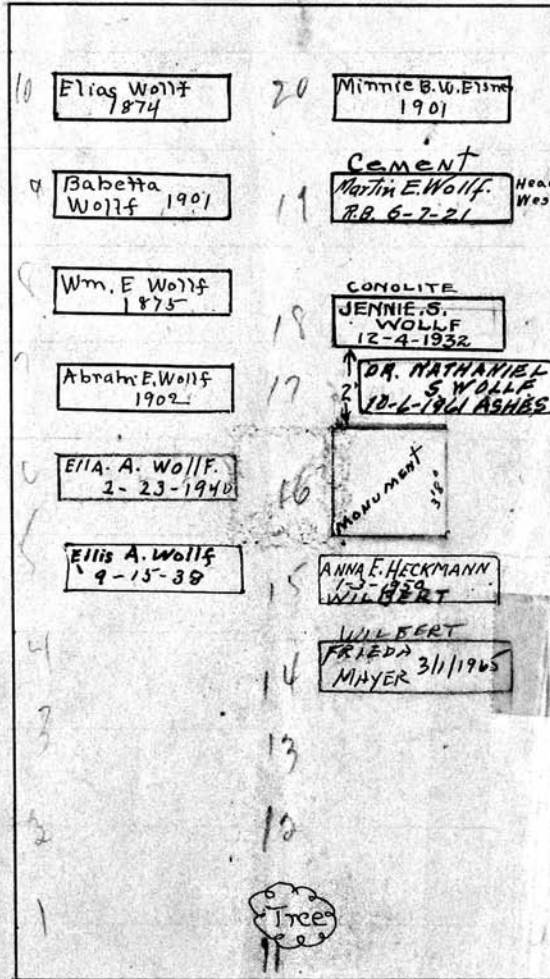 10
Elias Wollf
1874
9
Babetta
Wollf 1901
8
Wm. E Wollf
1875
7
Abrahm E. Wollf
1902
6
Ella. A. Wollf.
2-23-1940
5
Ellis A. Wollf
9-15-38
4
3
2
1
20
Minnie B. W. Elsne
1901
CEMENT
19
Martin E. Wollf.
R.B. 6-7-21
Hea
Wes
CONOLITE
18
JENNIE. S.
WOLLF
12-4-1932
17
2'
DR. NATHANIEL
S WOLLF
10-6-1961 ASHES
16
MONUMENT
3'8"
15
ANNA E. HECKMANN
1-3-1950
WILBERT
WILBERT
14
FRIEDA
MAYER 3/1/1965
13
12
Tree
11